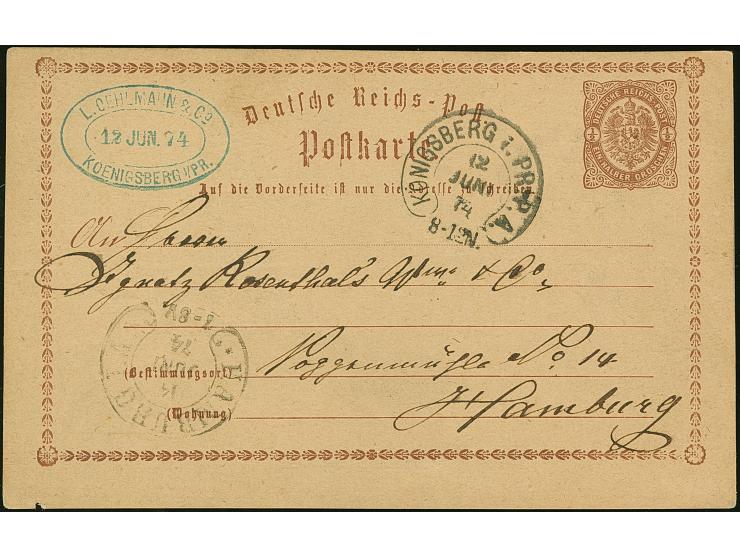 L. OEHLMANN & Co
12 JUN. 74
KOENIGSBERG I/PR.
Deutsche Reichs-Post
Postkarte
Auf die Vorderseite ist nur die Adresse zu schreiben
DEUTSCHE REICHS-POST
½ ½
EIN HALBER GROSCHEN
KÖNIGSBERG i. PR. P.A.
12
JUNI
74
8-12N.
An Herren
Ignatz Rosenthal's Wwe & Co
Poggenmühle No. 14
(Bestimmungsort)
Hamburg
(Wohnung)
HAMBURG
14
JUNI
74
7-8V